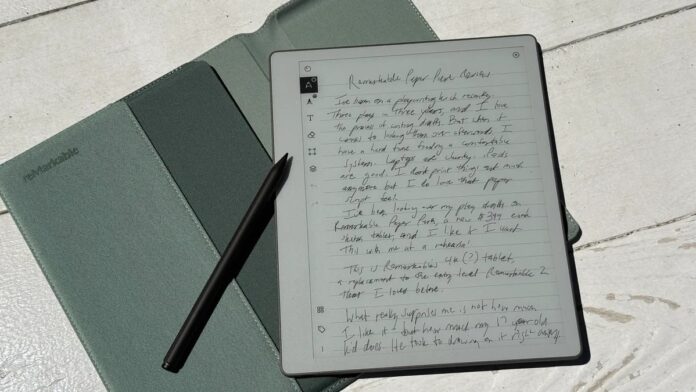 reMarkable
A
T
Remarkable Paper Pure Review
I've been on a playwriting kick recently.
Three plays in three years, and I love
the process of writing drafts. But when it
comes to looking them over afterwards, I
have a hard time finding a comfortable
system. Laptops are clunky. iPads
are good. I don't print things out much
anymore but I do love that paper
script feel.
I've been looking over my play drafts on
Remarkable Paper Pure, a new $399 e-ink
tablet, and I like it. I want
this with me at a rehearsal.
This is Remarkable's 4th (?) tablet,
a replacement to the entry level Remarkable 2
that I loved before.
What really surprises me is not how much
I like it - but how much my 17 year old
kid does. He took to drawing on it right away